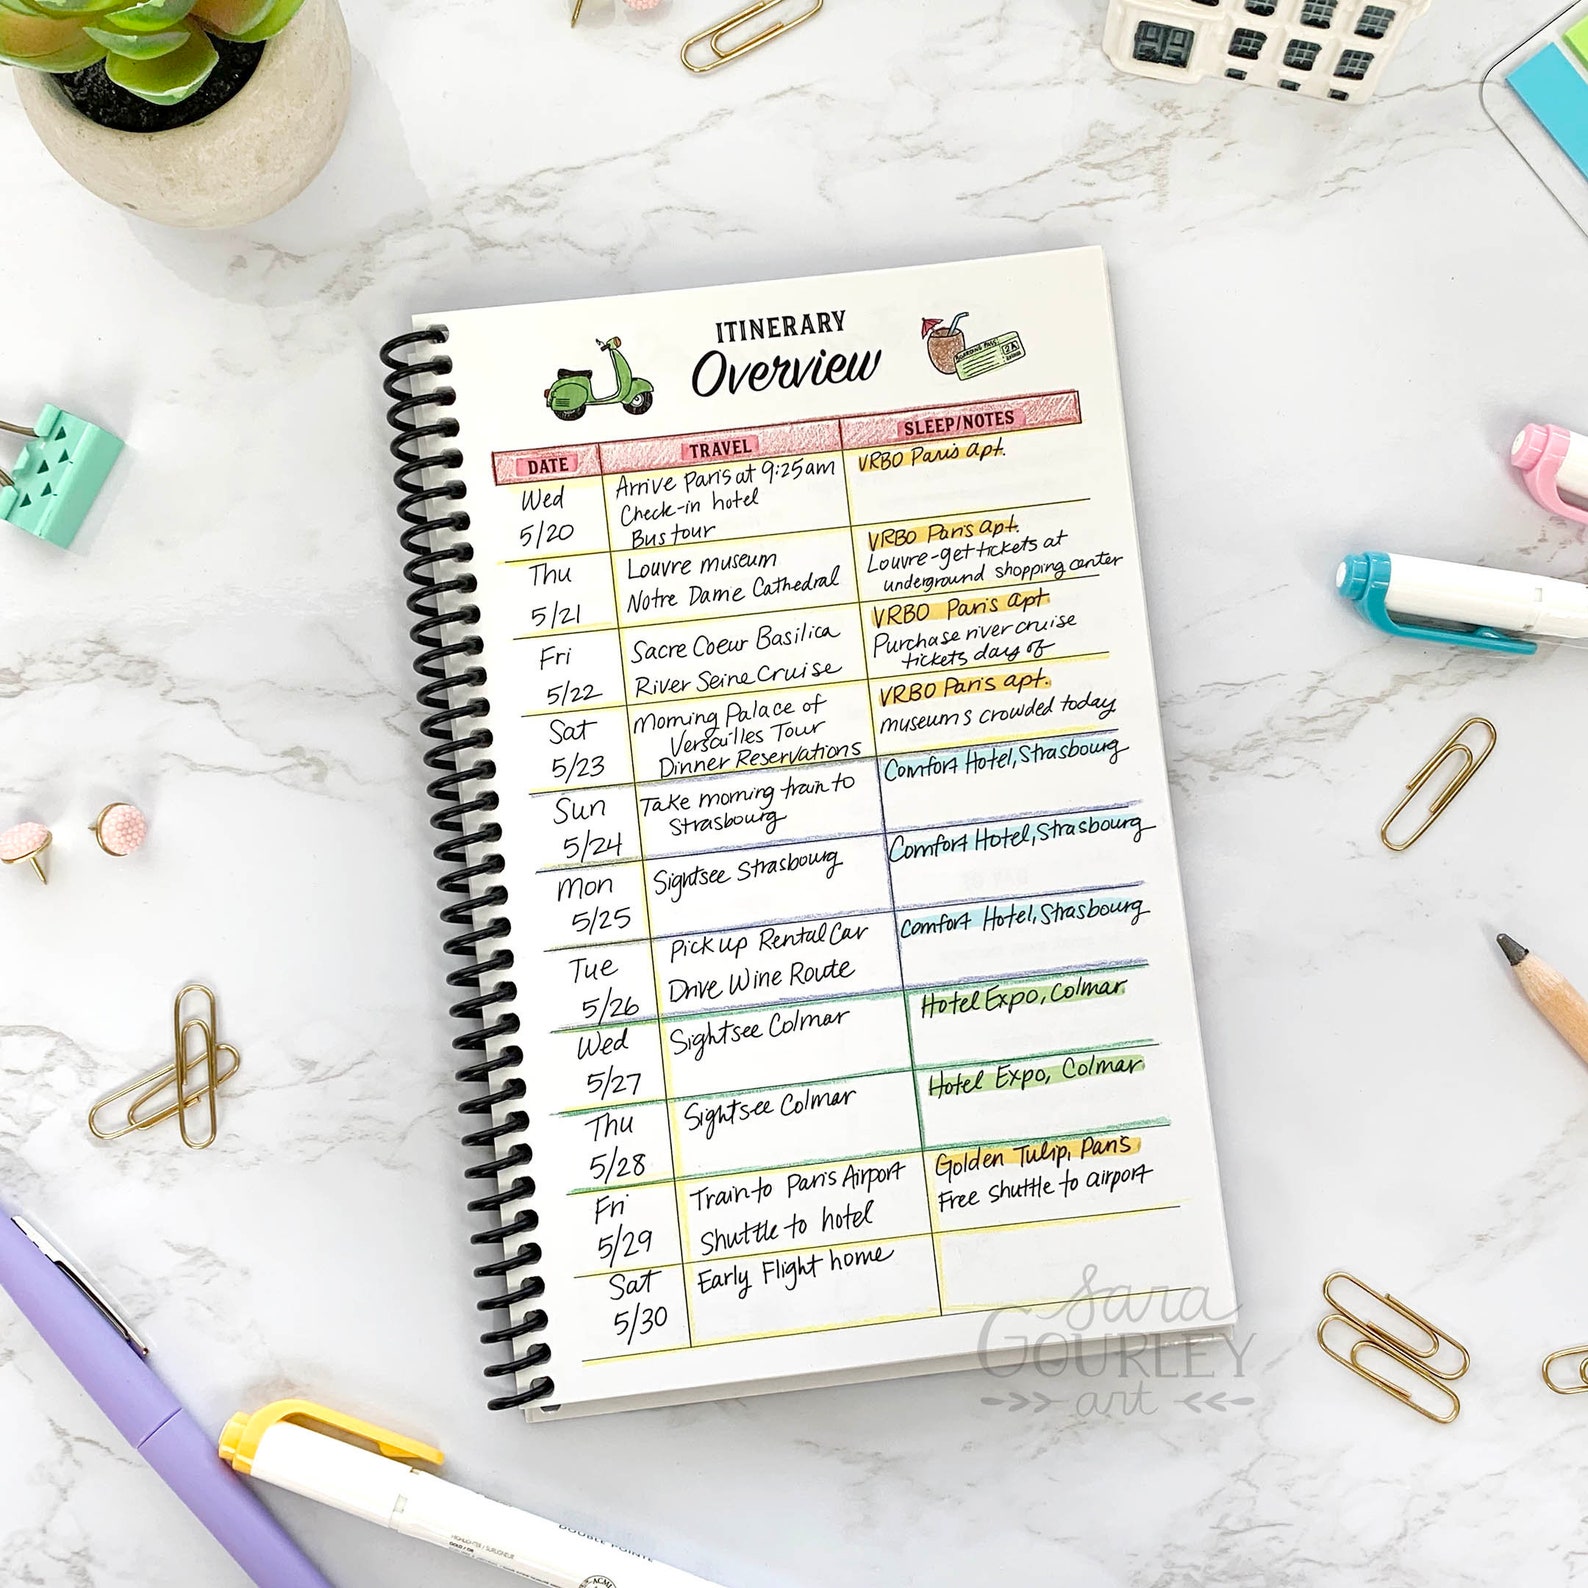 ITINERARY
Overview
BOARDING PASS
2A
DATE
TRAVEL
SLEEP/NOTES
Wed
5/20
Arrive Paris at 9:25am
Check-in hotel
Bus tour
VRBO Paris Apt.
Thu
5/21
Louvre museum
Notre Dame Cathedral
VRBO Paris Apt.
Louvre-get tickets at
underground shopping center
Fri
5/22
Sacre Coeur Basilica
River Seine Cruise
VRBO Paris apt
Purchase river cruise
tickets day of
Sat
5/23
Morning Palace of
Versailles Tour
Dinner Reservations
VRBO Paris apt.
museums crowded today
Sun
5/24
Take morning train to
Strasbourg
Comfort Hotel, Strasbourg
Mon
5/25
Sightsee Strasbourg
Comfort Hotel, Strasbourg
Tue
5/26
Pick up Rental Car
Drive Wine Route
Comfort Hotel, Strasbourg
Wed
5/27
Sightsee Colmar
Hotel Expo, Colmar
Thu
5/28
Sightsee Colmar
Hotel Expo, Colmar
Fri
5/29
Train to Paris Airport
Shuttle to hotel
Golden Tulip, Paris
Free shuttle to airport
Sat
5/30
Early Flight home
Sara
GOURLEY
art
DOUBLE POINTE